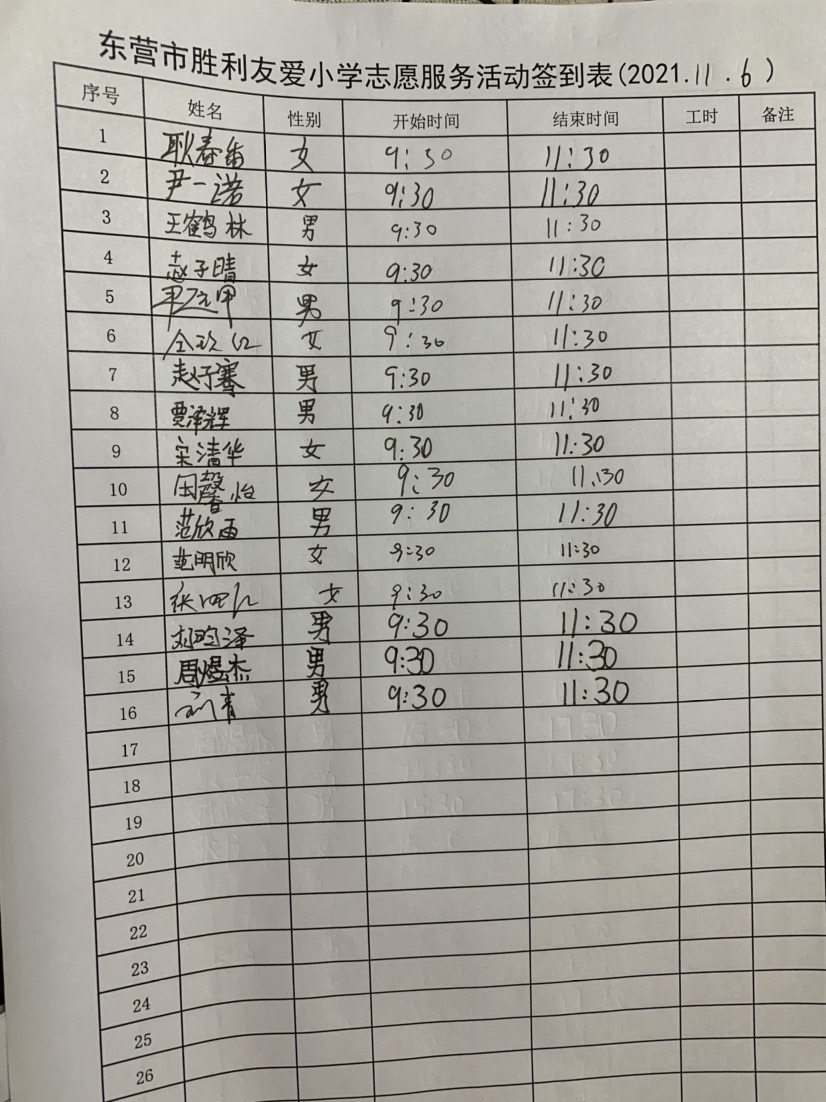 东营市胜利友爱小学志愿服务活动签到表(2021.11.6)
序号 姓名 性别 开始时间 结束时间 工时 备注
1 耿春雷 女 9:30 11:30
2 尹一诺 女 9:30 11:30
3 王鹤林 男 9:30 11:30
4 赵子晴 女 9:30 11:30
5 男 9:30 11:30
6 女 9:30 11:30
7 男 9:30 11:30
8 贾泽辉 男 9:30 11:30
9 宋清华 女 9:30 11:30
10 田馨怡 女 9:30 11:30
11 男 9:30 11:30
12 范明欣 女 9:30 11:30
13 女 9:30 11:30
14 刘昀泽 男 9:30 11:30
15 周煜杰 男 9:30 11:30
16 刘青 男 9:30 11:30
17
18
19
20
21
22
23
24
25
26